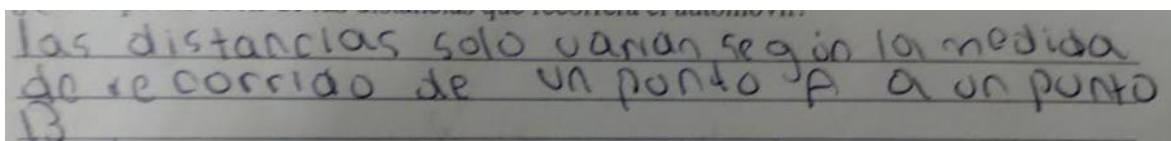 las distancias solo varian según la medida
de recorrido de un ponto A a un punto
B